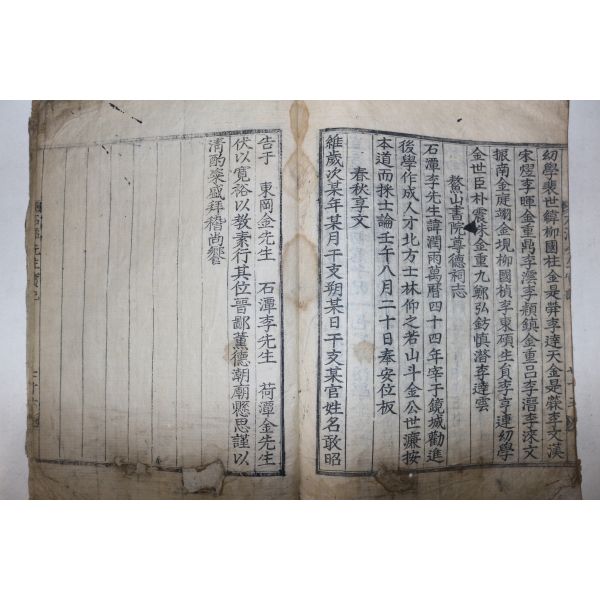 幼學裴世緯柳國柱金是㷯李達天金是㷯李文漢
宋熤李暉金重鼎李澐李顈鎭金重呂李溍李深文
振南金庭翊金垷柳國楨李東碩生員李亨達幼學
金世臣朴震求金重九鄭弘鈞愼潛李達雲
鰲山書院尊德祠志
石潭李先生諱潤雨萬曆四十四年宰于鏡城勸進
後學作成人才北方士林仰之若山斗金公世濂按
本道而採士論壬午八月二十日奉安位板
春秋享文
維歲次某年某月干支朔某日干支某官姓名敢昭
告于 東岡金先生 石潭李先生 荷潭金先生
伏以寬裕以敎素行其位晉鄙薰德潮廟懸思謹以
淸酌粢盛拜稽尙饗
石潭先生實記